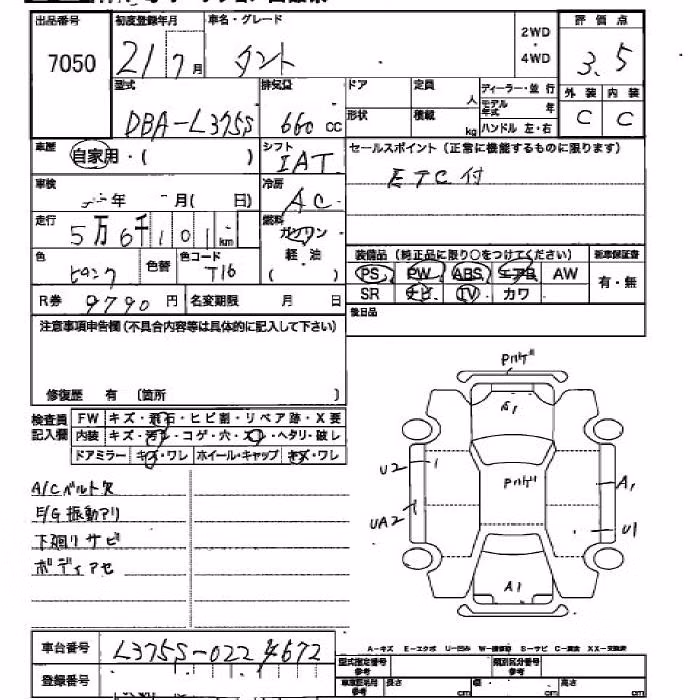 出品番号 初度登録年月 車名・グレード 評価点
7050 21 7月 タント 2WD・4WD 3.5
型式 排気量 ドア 定員 人 ディーラー・並行 外装 内装
DBA-L375S 660 cc 形状 積載 kg モデル年式 ハンドル 左・右 C C
車歴 自家用・( ) シフト IAT セールスポイント (正常に機能するものに限ります)
車検 年 月( 日) 冷房 AC ETC付
走行 5万6千101km 燃料 ガソリン 軽油 ( )
色 ピンク 色替 色コード T16 装備品 (純正品に限り○をつけてください) 新車保証書
PS PW ABS エアB AW 有・無
R券 9790円 名変期限 月 日 SR ナビ TV カワ
注意事項申告欄(不具合内容等は具体的に記入して下さい) 後日品
修復歴 有 〔箇所 〕
検査員記入欄 FW キズ・飛石・ヒビ割・リペア跡・X要
内装 キズ・汚レ・コゲ・穴・スレ・ヘタリ・破レ
ドアミラー キズ・ワレ ホイール・キャップ キズ・ワレ
A/Cベルト欠
E/G振動アリ
下廻りサビ
ボディアセ
Pハゲ
A1
U2 Pハゲ A1
UA2 U1
A1
車台番号 L375S-0224672
登録番号
A-キズ E-エクボ U-凹み W-補修跡 S-サビ C-腐食 XX-交換済
型式指定番号 参考 類別区分番号 参考
長さ cm 幅 cm 高さ cm